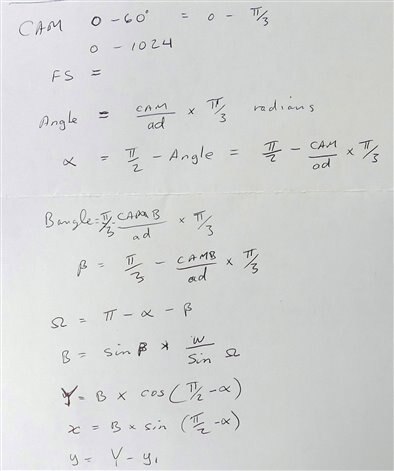 CAM 0 - 60° = 0 - π/3
0 - 1024
FS =
Angle = CAM/ad × π/3 radians
α = π/2 - Angle = π/2 - CAM/ad × π/3
Bangle = π/3 - CAMB/ad × π/3
β = π/3 - CAMB/ad × π/3
Ω = π - α - β
B = sin β * w/Sin Ω
Y = B × cos (π/2 - α)
x = B × sin (π/2 - α)
y = Y - y₁